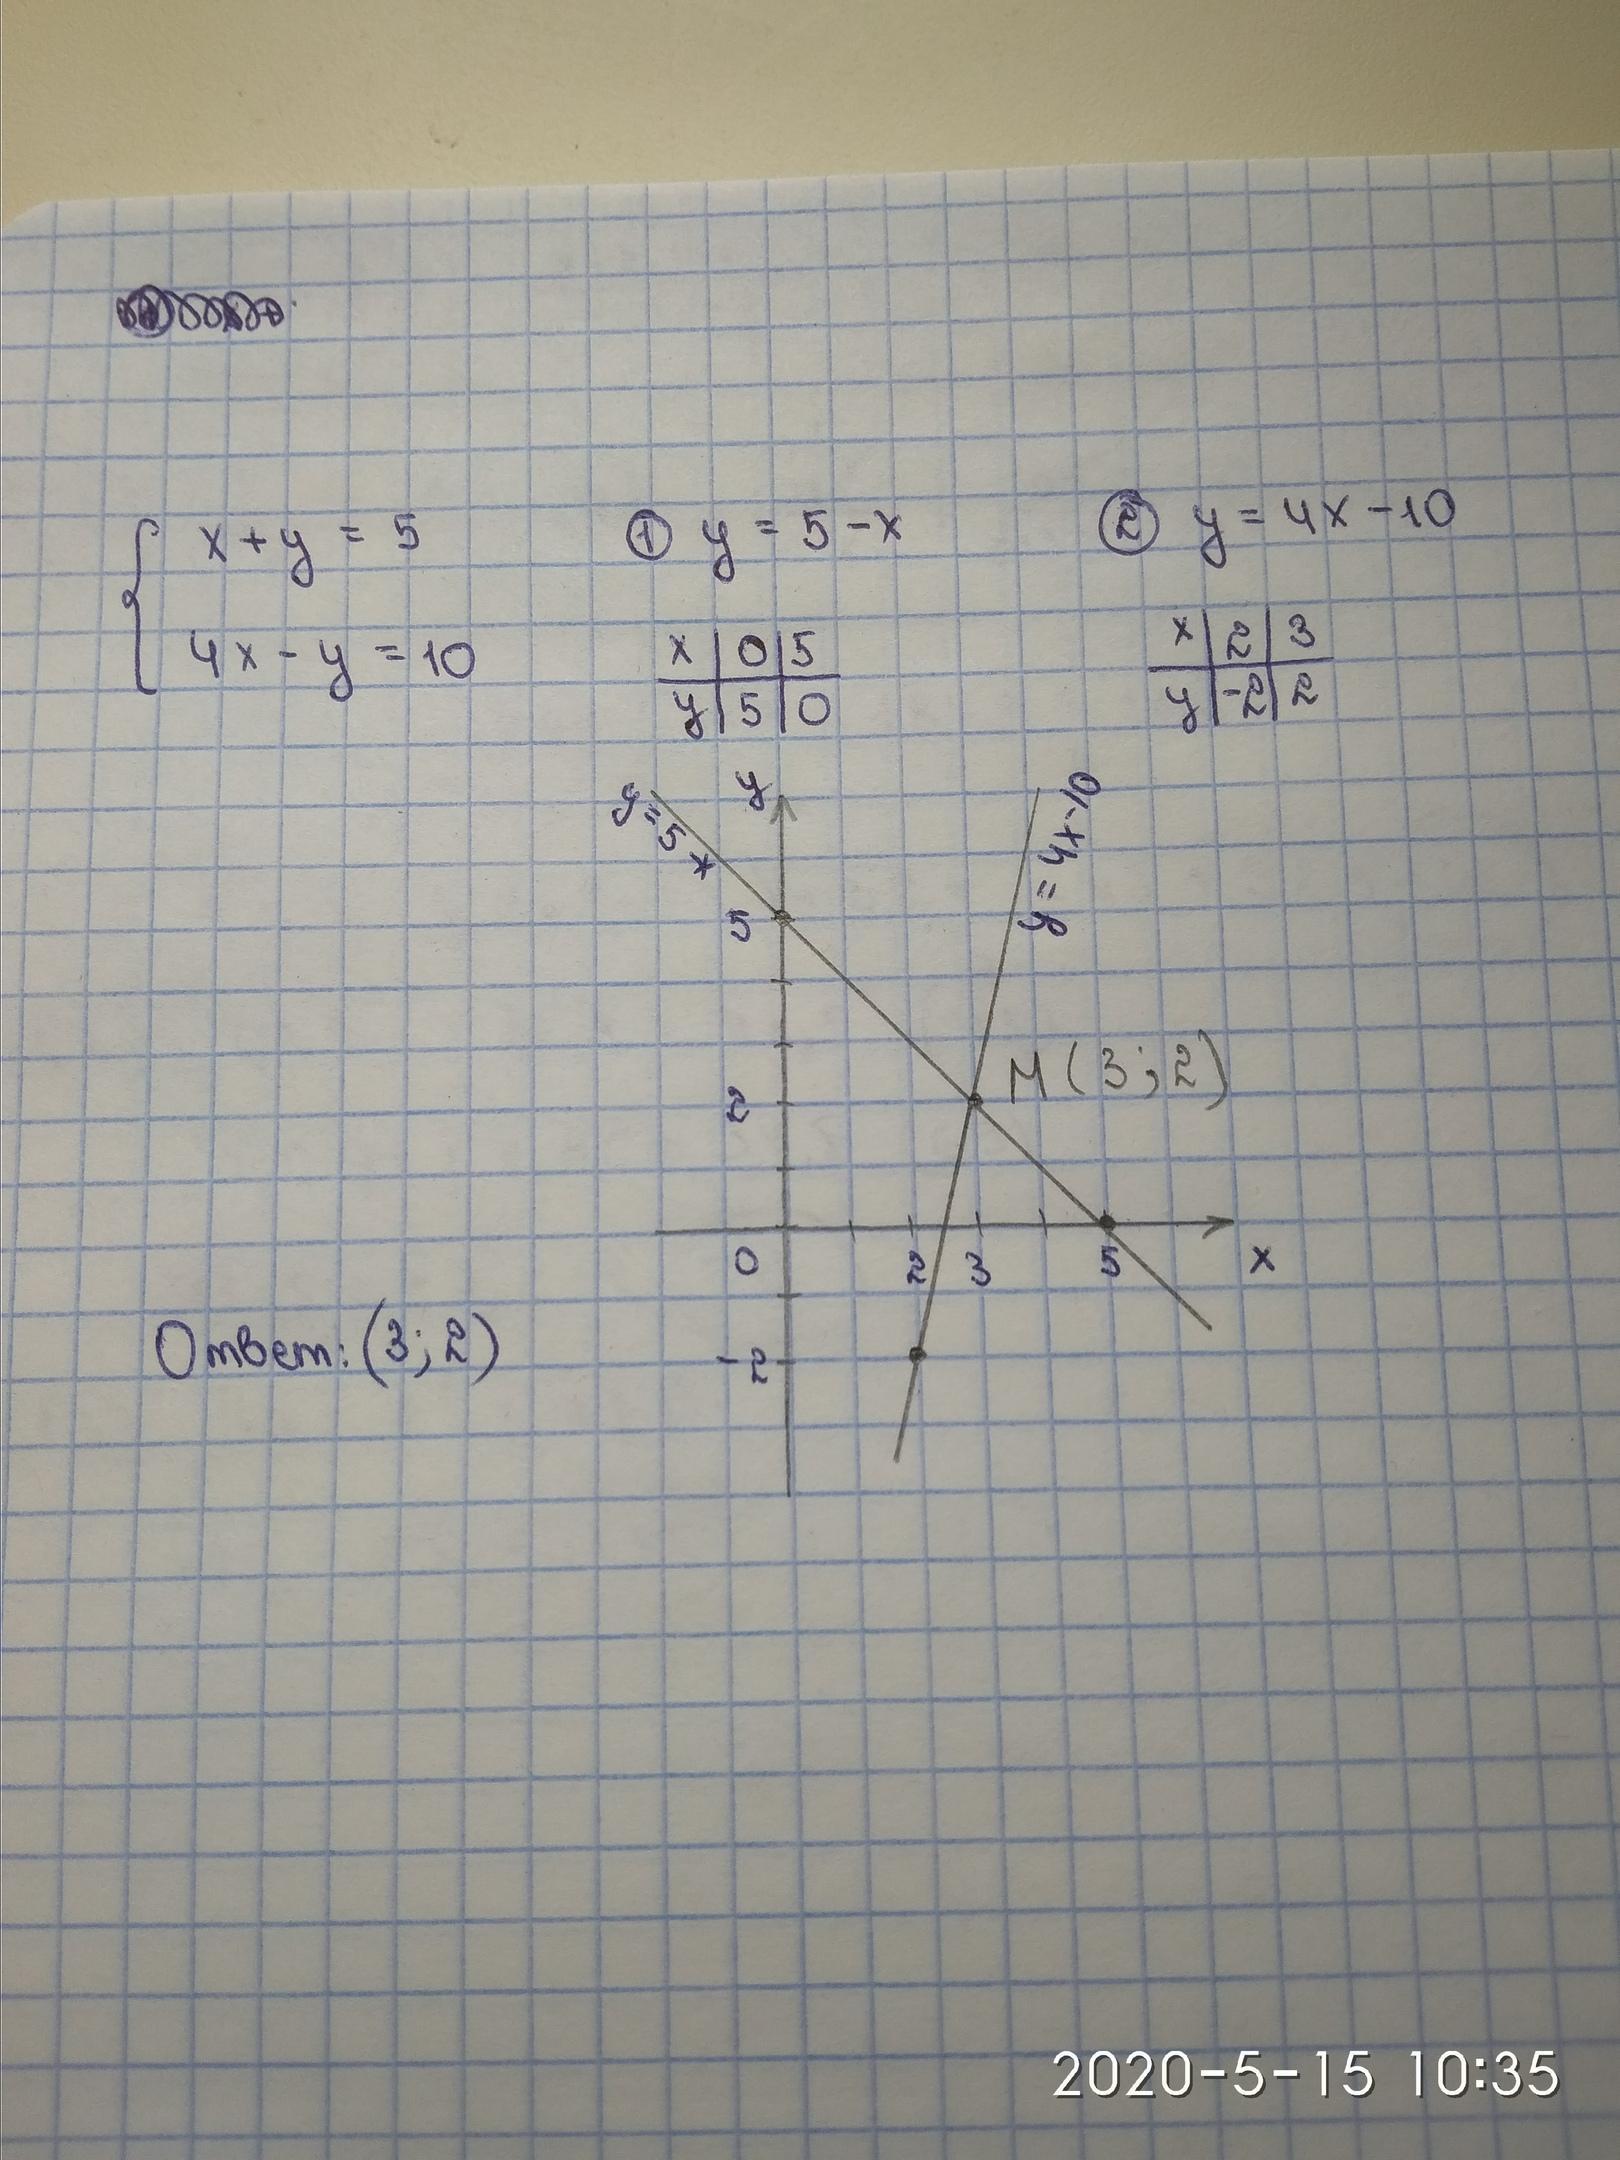 x + y = 5
4x - y = 10
① y = 5 - x
x 0 5
y 5 0
② y = 4x - 10
x 2 3
y -2 2
y
y = 5 - x
y = 4x - 10
5
M (3; 2)
2
0 2 3 5 x
-2
Ответ: (3; 2)
2020-5-15 10:35